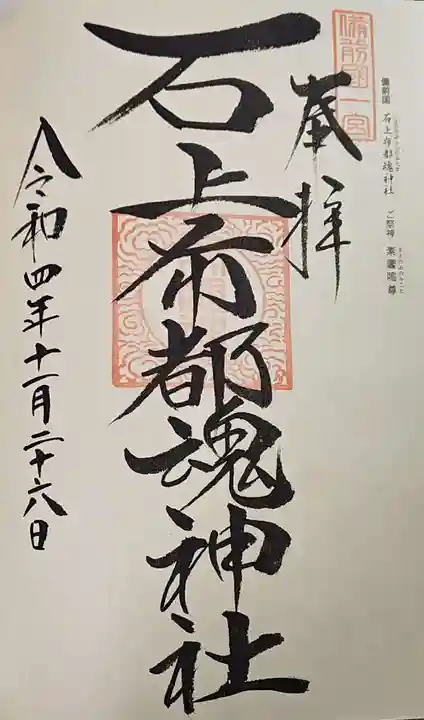 備前国 石上布都魂神社 ご祭神 素盞嗚尊
備前國一宮
奉拝
石上布都魂神社
令和四年十一月二十六日